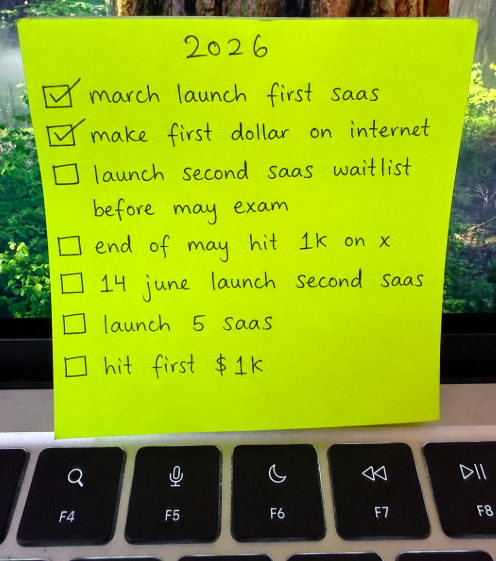 2026
march launch first saas
make first dollar on internet
launch second saas waitlist
before may exam
end of may hit 1k on x
14 june launch second saas
launch 5 saas
hit first $1k
F4
F5
F6
F7
F8